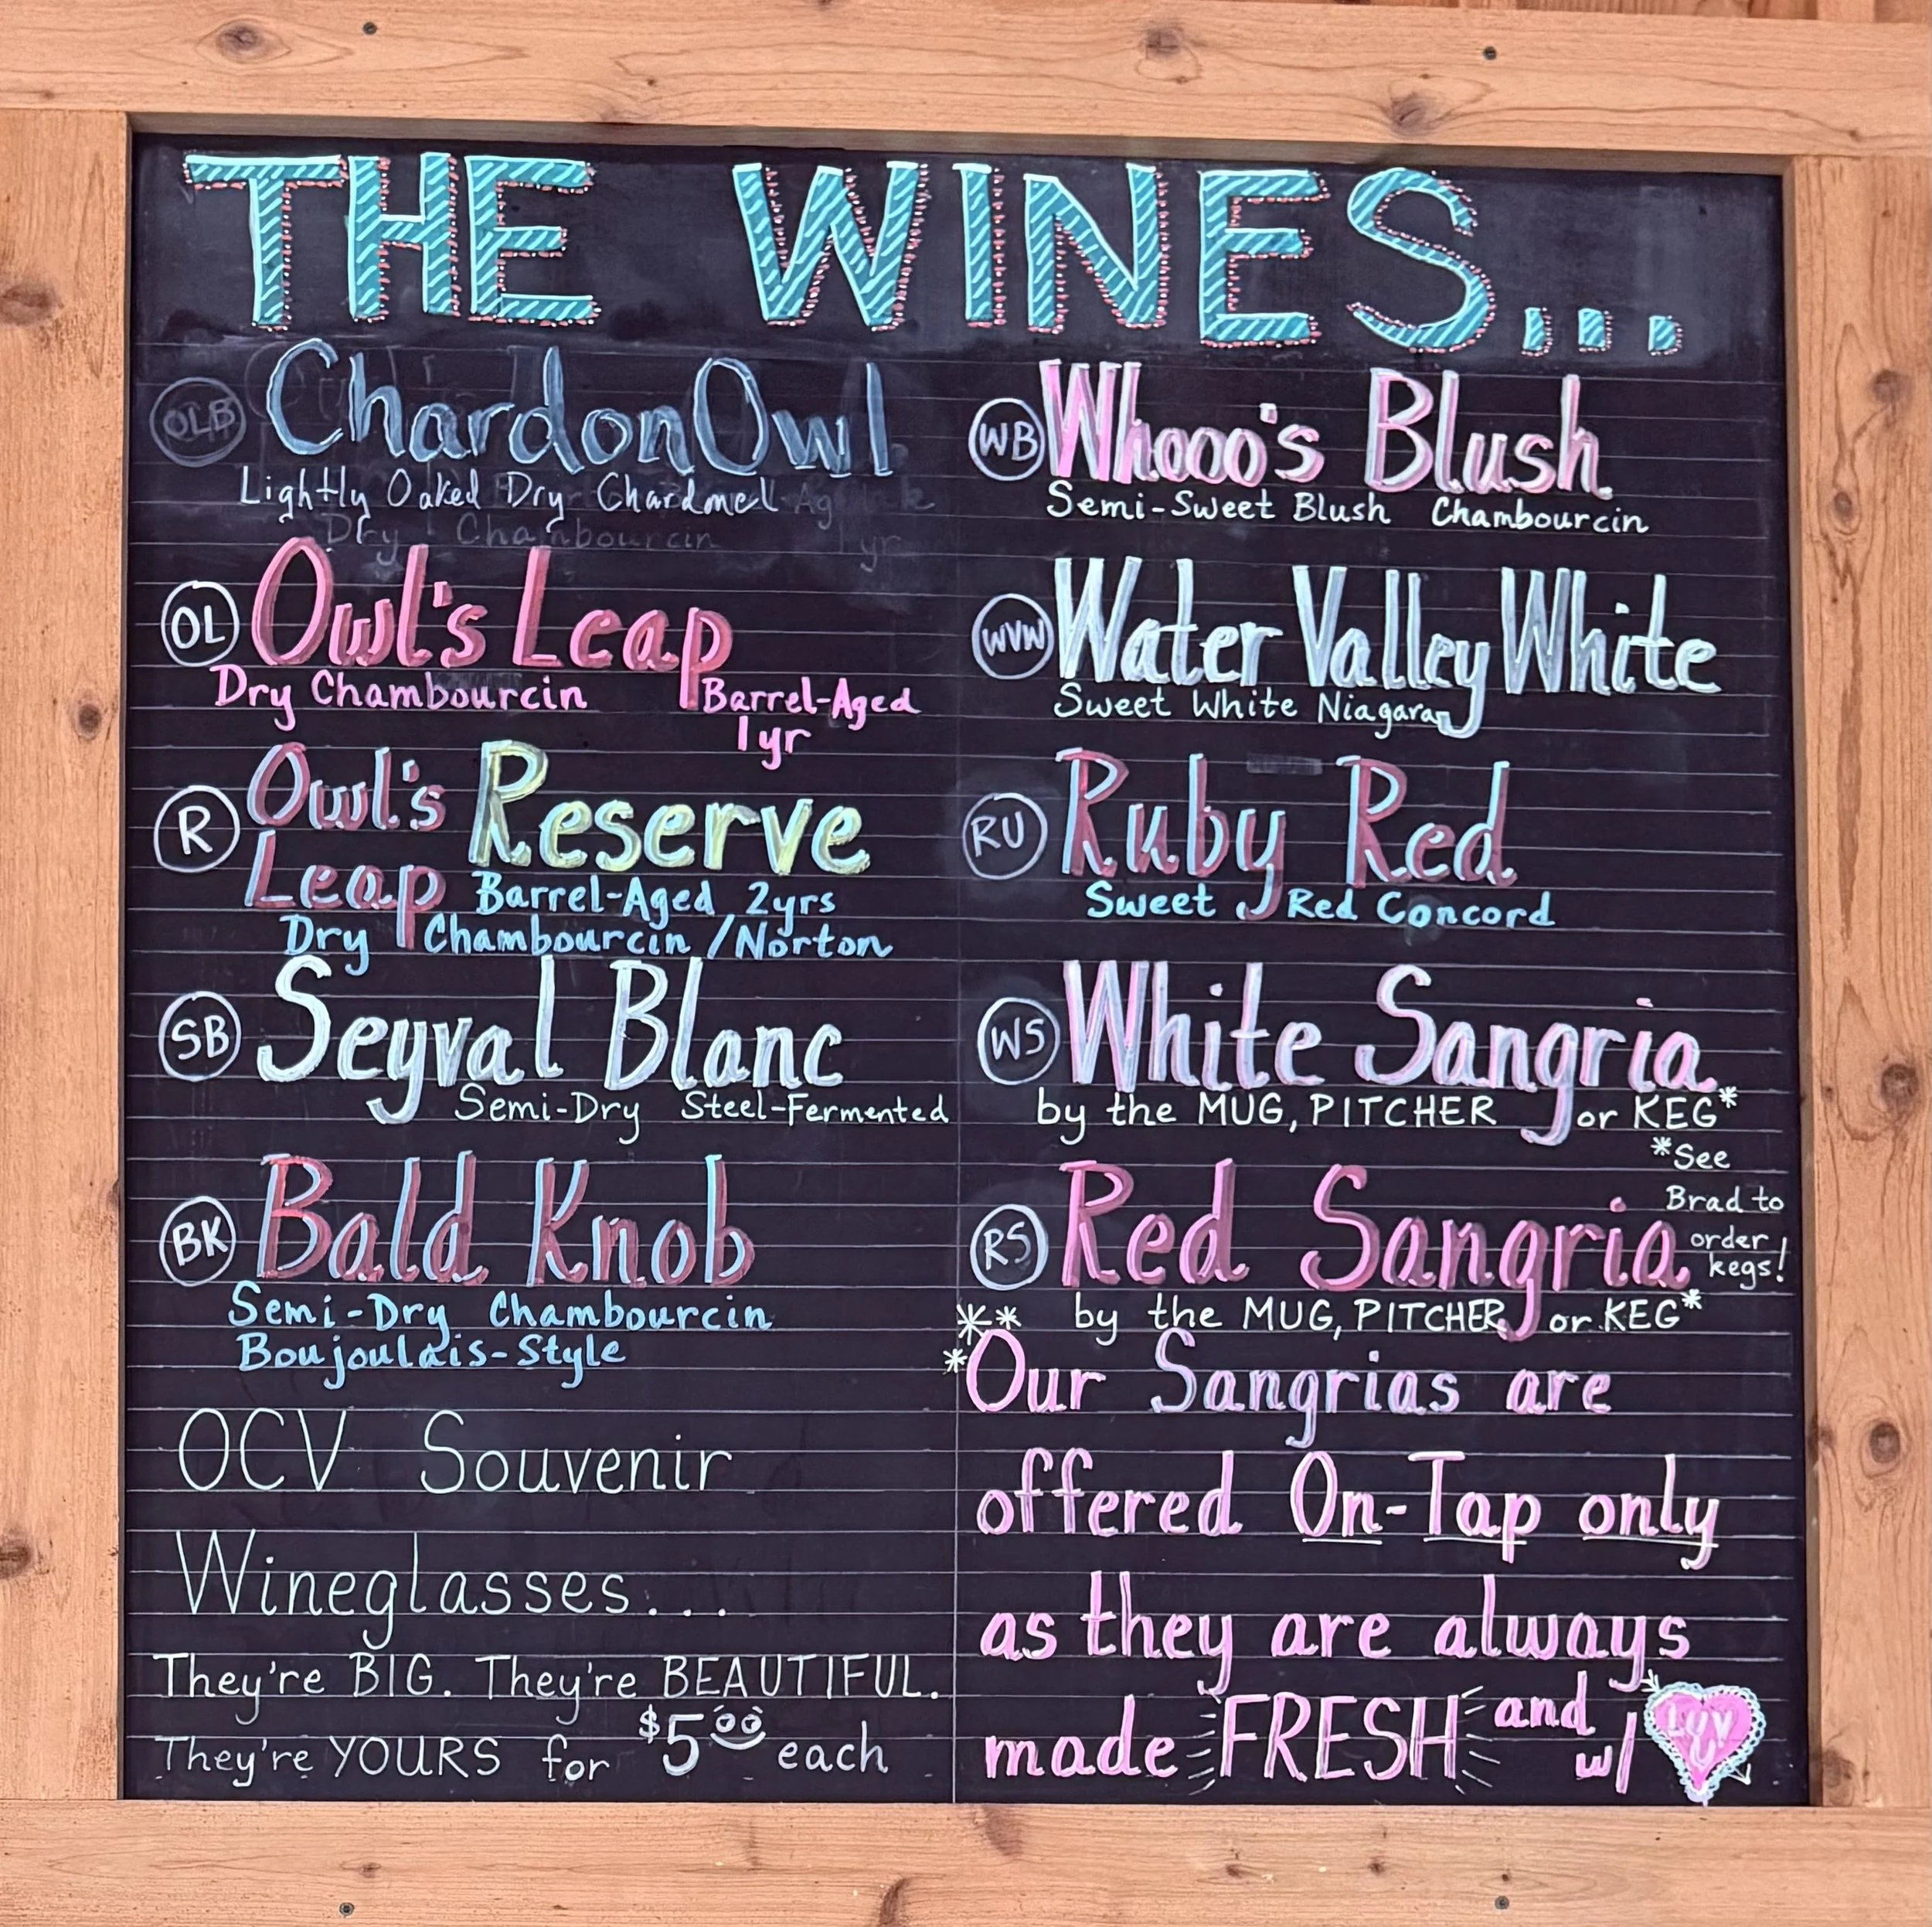 THE WINES...
OLB ChardonOwl
Lightly Oaked Dry Chardonel
Dry Chambourcin 1 yr
OL Owl's Leap
Dry Chambourcin Barrel-Aged
1yr
R Owl's Reserve
Leap Barrel-Aged 2yrs
Dry Chambourcin / Norton
SB Seyval Blanc
Semi-Dry Steel-Fermented
BK Bald Knob
Semi-Dry Chambourcin
Boujoulais-Style
OCV Souvenir
Wineglasses...
They're BIG. They're BEAUTIFUL.
They're YOURS for $5.00 each
WB Whooo's Blush
Semi-Sweet Blush Chambourcin
WVW Water Valley White
Sweet White Niagara
RU Ruby Red
Sweet Red Concord
WS White Sangria
by the MUG, PITCHER or KEG*
*See
Brad to
order
kegs!
RS Red Sangria
by the MUG, PITCHER, or KEG*
***Our Sangrias are
offered On-Tap only
as they are always
made FRESH and
w/ LUV U